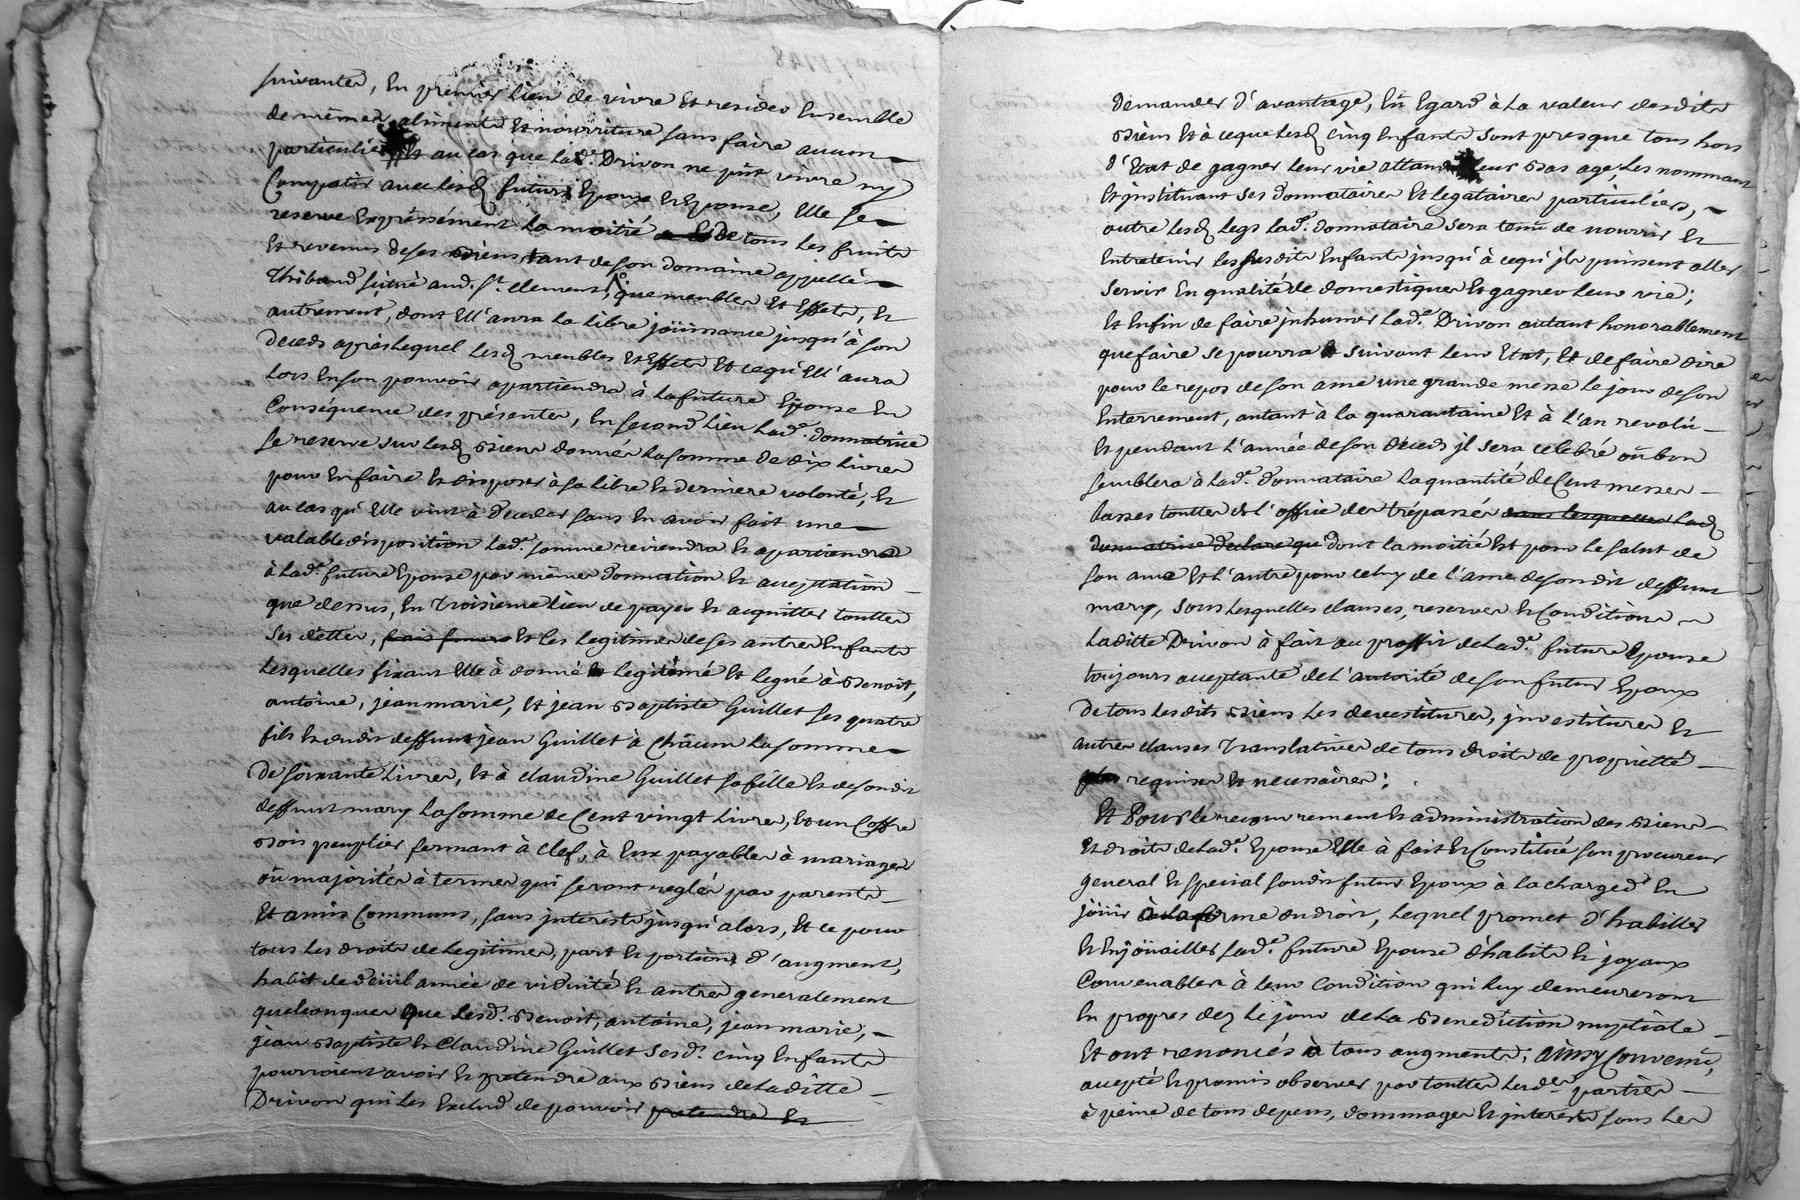 suivantes, En premier lieu de vivre Et resider Ensemble
de mêmes aliments Et nourriture sans faire aucun
particulier, Et au cas que lad.e Drivon ne pût vivre ny
Compatir avec lesd futurs Epoux Et Epouse, Elle se
reserve Expressément la moitié de tous les fruits
Et revenus de ses Biens tant de son domaine appellé
Thibaud scitué aud. St. clement, que meubles Et Effets, Et
autrement, dont Ell'aura la libre joüissance jusqu'à son
Deceds après lequel lesd meubles Et Effets Et ce qu'Ell'aura
lors En son pouvoir apartiendra à la future Epouse En
Conséquence des présentes, En second lieu lad.e donnatrice
se reserve sur lesd Biens donnés la somme de dix livres
pour En faire Et disposer à sa libre Et derniere volonté, Et
au cas qu'Elle vint à Deceder sans En avoir fait une
valable disposition lad.e somme reviendra Et apartiendra
à lad.e future Epouse par même donnation Et acceptation
que dessus, En troisieme lieu de payer Et acquitter touttes
ses dettes, frais funer Et les legitimes de ses autres Enfants
lesquelles fixant Elle à donné legitimé Et legué à Benoit,
antoine, jean marie, Et jean Baptiste Guillet ses quatre
fils Et dudit deffunt jean Guillet à Châcun la somme
De soixante livres, Et à claudine Guillet sa fille Et de sondit
deffunt mary la somme de Cent vingt livres, Et un Coffre
Bois peuplier fermant à clef, à Eux payables à mariages
où majorités à termes qui seront reglés par parents
Et amis Communs, sans interests jusqu'alors, Et ce pour
tous les droits de legitimes, part Et portions d'augment,
habit de deüil année de viduité Et autres generalement
quelconques que lesd. Benoit, antoine, jean marie,
jean Baptiste Et Claudine Guillet sesd. cinq Enfants
pourroient avoir Et pretendre aux Biens de laditte
Drivon qui les Exclud de pouvoir pretendre Et
demander d'avantage, En Egard à la valeur desdits
Biens Et à ce que lesd cinq Enfants sont presque tous hors
d'Etat de gagner leur vie attandu leur Bas age, les nommant
Et jnstituant ses donnataires Et legataires particuliers,
outre lesd legs lad.e donnataire sera tenuë de nourrir Et
Entretenir les susdits Enfants jusqu'à ce qu'jls puissent aller
servir En qualité de domestiques Et gagner leur vie;
Et Enfin de faire jnhumer lad.e Drivon autant honorablement
que faire se pourra suivant leur Etat, Et de faire dire
pour le repos de son ame une grande messe le jour de son
Enterrement, autant à la quarantaine Et à l'an revolû
Et pendant l'année de son deceds jl sera celebré où bon
semblera à lad.e donnataire la quantité de Cent messes
basses touttes de l'office des trépassés sous lesquelles lad
Donnatrice declare que dont la moitié Est pour le salut de
son ame Et l'autre pour celuy de l'ame de sondit deffunt
mary, sous lesquelles clauses, reserves Et Conditions
laditte Drivon à fait au proffit de lad.e future Epouse
toujours acceptante de l'autorité de son futur Epoux
De tous lesdits Biens les devestitures, jnvestitures Et
autres clauses translatives de tous droits de propriette
requises Et necessaires;
Et Pour le recouvrement Et administration des Biens
Et droits de lad.e Epouse Elle à fait Et Constitué son procureur
general Et special sondit futur Epoux à la charge d'En
joüir à la forme du droit, lequel promet d'habiller
Et Enjöuailler lad.e future Epouse d'habits Et joyaux
Convenables à leur Condition qui luy demeureront
En propres dez le jour de la Benediction nuptiale
Et ont renoncés à tous augments; Ainsy Convenu,
accepté Et promis observer par touttes lesd.es parties
à peine de tous depens, dommages Et interests sous les